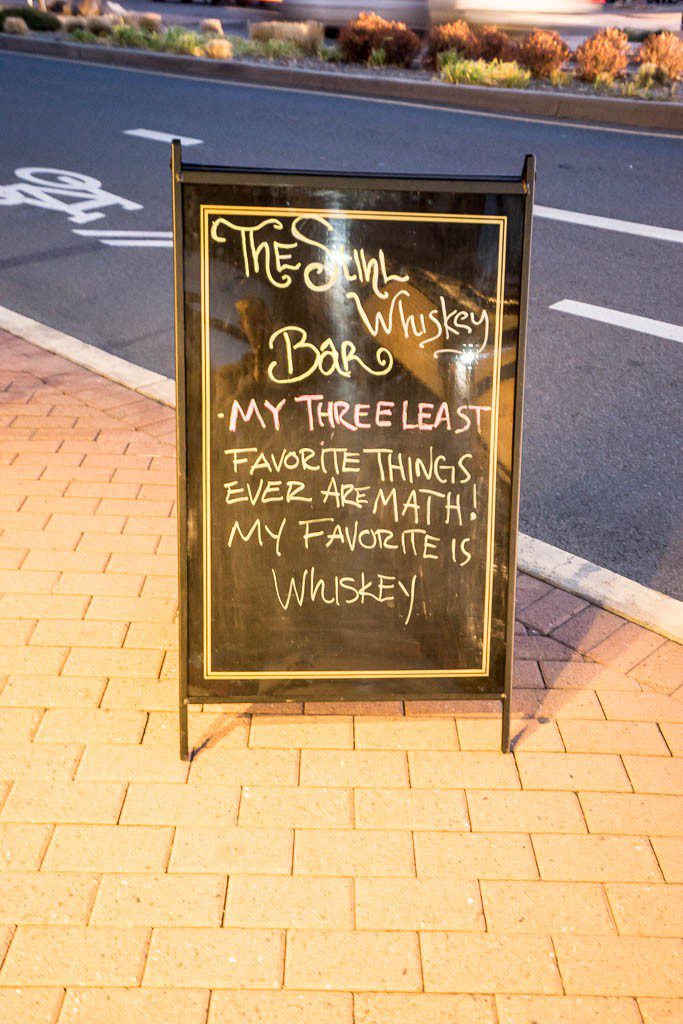 The Still
Whiskey
Bar
· MY THREE LEAST
FAVORITE THINGS
EVER ARE MATH!
MY FAVORITE IS
WHISKEY